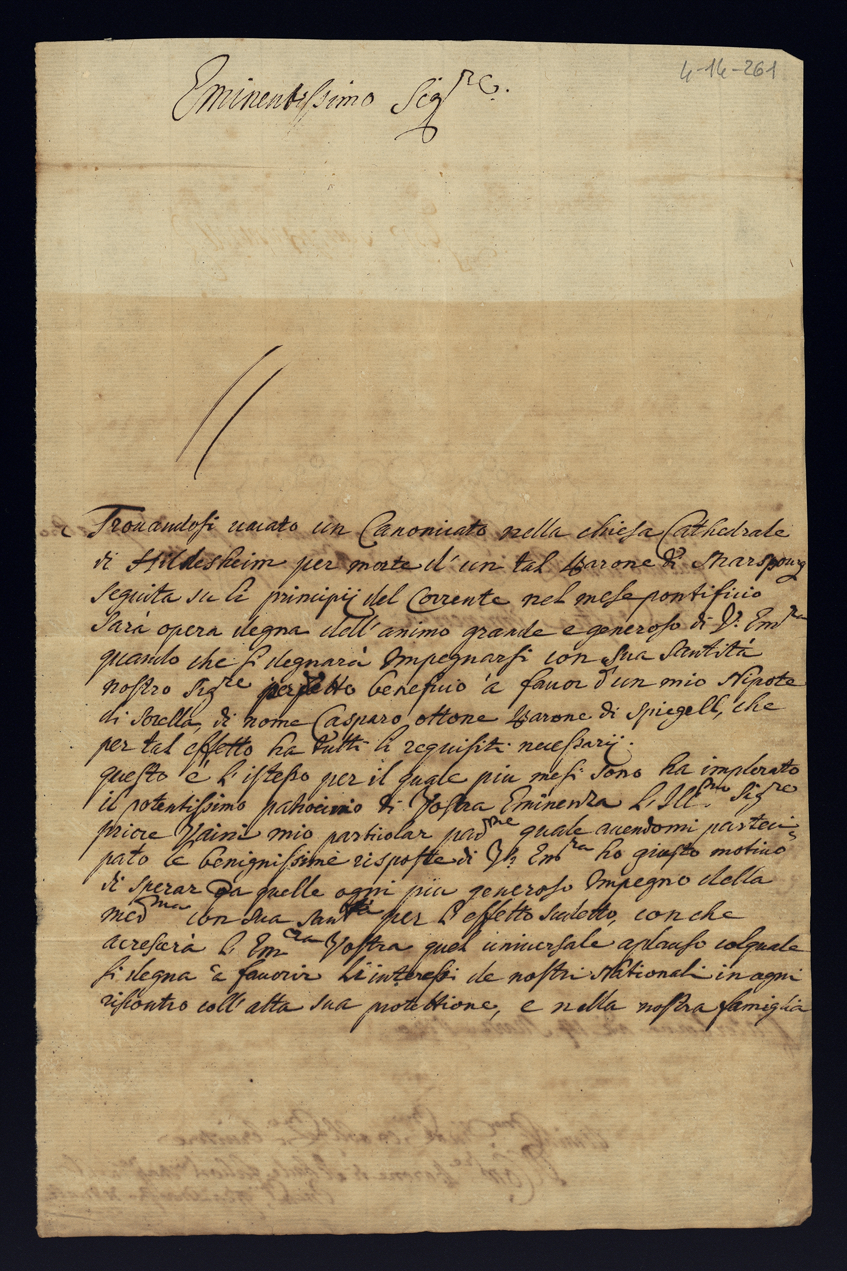 4-14-261
Eminentissimo Sig.re
Trouandosi uacato un Canonicato nella chiesa Cathedrale
di Hildesheim per morte d'un tal Barone di
seguita su li principij del Corrente nel mese pontificio
sarà opera degna dell'animo grande e generoso di V. Em.za
quando che si degnarà impegnarsi con sua Santità
nostro Sig.re per detto beneficio à fauor d'un mio Nipote
di sorella, di nome Casparo ottone Barone di Spiegell, che
per tal effetto ha tutti li requisiti necessarij.
questo è l'istesso per il quale piu mesi sono ha implorato
il potentissimo patrocinio di Vostra Eminenza l'Ill.mo Sig.re
priore Vaini mio particolar pad.ne quale auendomi parteci=
pato le benignissime risposte di V. Em.za ho giusto motiuo
di sperar da quelle ogni piu generoso impegno della
med.ma con sua San.tà per l'effetto sudetto, con che
acrescerà l'Em.za Vostra quel uniuersale aplauso colquale
si degna à fauorir l'interessi de nostri Nationali in ogni
riscontro coll'alta sua protettione, e nella nostra famiglia